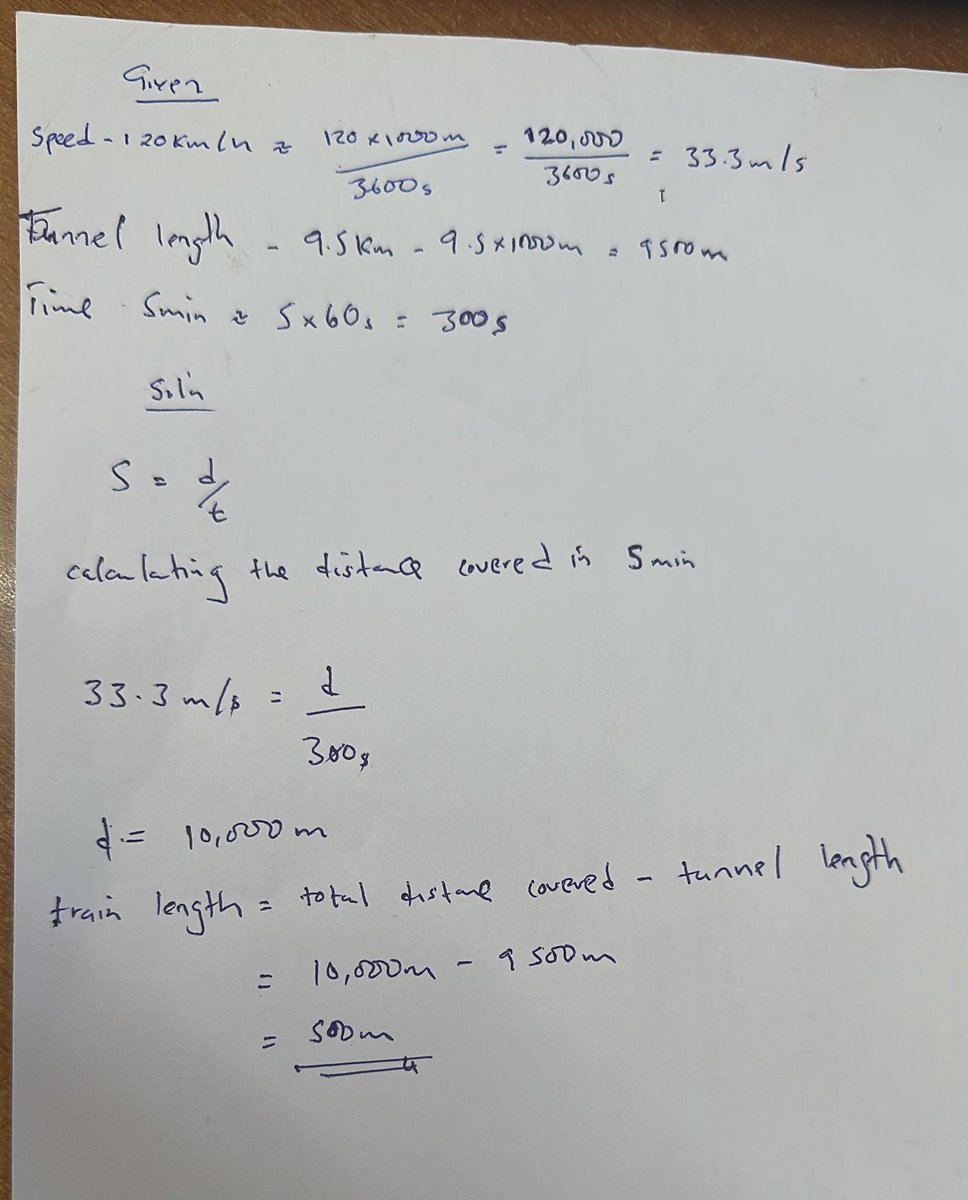 Given
Speed - 120 Km/h ≈ 120 x 1000m / 3600s = 120,000 / 3600s = 33.3 m/s
Tunnel length - 9.5 Km - 9.5 x 1000m = 9500m
Time - 5min ≈ 5 x 60s = 300s
Sol'n
S = d/t
calculating the distance covered in 5 min
33.3 m/s = d / 300s
d = 10,000 m
train length = total distance covered - tunnel length
= 10,000m - 9500m
= 500m